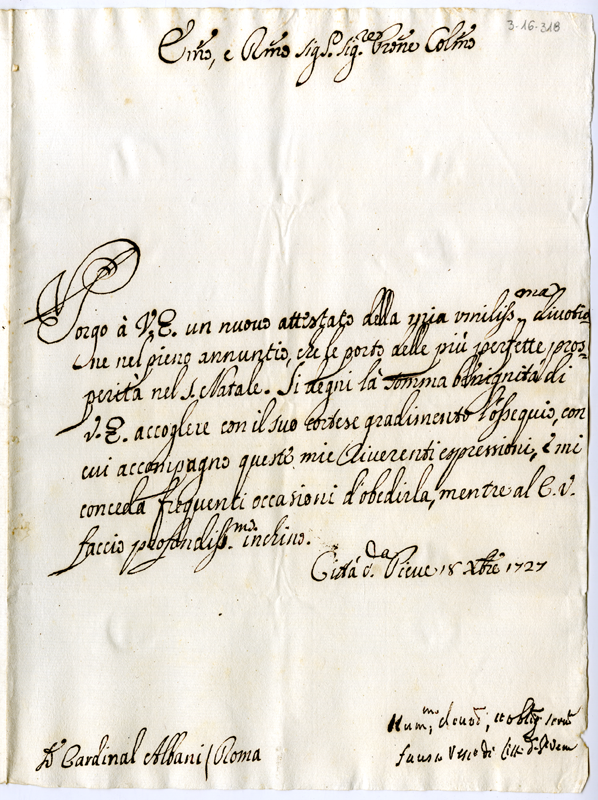 3-16-318
Em̃o, e Rm̃o Sig.r Sig.re Pron̄e Colmo
Porgo à V.E. un nuovo attestato della mia vmiliss.ma divotio=
ne nel pieno annuntio, che le porto delle più perfette pros=
perità nel S. Natale. Si degni la somma benignità di
V.E. accogliere con il suo cortese gradimento l'ossequio, con
cui accompagno queste mie riverenti espressioni, e mi
conceda frequenti occasioni d'obedirla, mentre al E.V.
faccio profondiss.mo inchino.
Città d.a Pieve 18 Xbre 1727
Hum.mo, deuot.
Vesc.
Cardinal Albani / Roma